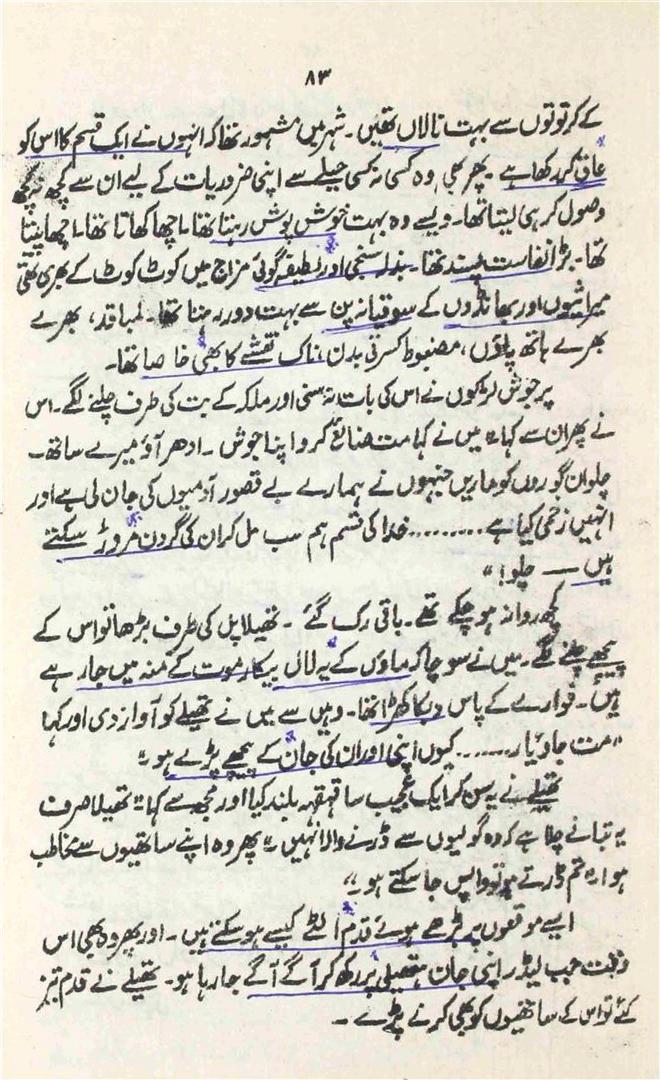 ۸۳
کے کرتوتوں سے بہت نالاں تھیں۔ شہر میں مشہور تھا کہ انہوں نے ایک قسم کا اس کو
عاق کر رکھا ہے۔ پھر بھی وہ کسی نہ کسی حیلے سے اپنی ضروریات کے لیے ان سے کچھ نہ کچھ
وصول کر ہی لیتا تھا۔ ویسے وہ بہت خوش پوش رہتا تھا۔ اچھا کھاتا تھا۔ اچھا پیتا
تھا۔ بڑا نفاست پسند تھا۔ بذلہ سنجی اور لطیفہ گوئی مزاج میں کوٹ کوٹ کے بھری تھی
میراثیوں اور بھانڈوں کے سوقیانہ پن سے بہت دور رہتا تھا۔ لمبا قد، بھرے
بھرے ہاتھ پاؤں، مضبوط کسرتی بدن، ناک نقشے کا بھی خاصا تھا۔
پرجوش لڑکوں نے اس کی بات نہ سنی اور ملکہ کے بت کی طرف چلنے لگے۔ اس
نے پھر ان سے کہا "میں نے کہا مت ضائع کرو اپنا جوش۔ ادھر آؤ میرے ساتھ۔
چلو ان گوروں کو ماریں جنہوں نے ہمارے بے قصور آدمیوں کی جان لی ہے اور
انہیں زخمی کیا ہے ......... خدا کی قسم ہم سب مل کر ان کی گردن مروڑ سکتے
ہیں — چلو!"
کچھ روانہ ہو چکے تھے۔ باقی رک گئے۔ تھیلا پل کی طرف بڑھا تو اس کے
پیچھے چلنے لگے۔ میں نے سوچا کہ ماؤں کے یہ لال بیکار موت کے منہ میں جا رہے
ہیں۔ فوارے کے پاس دبکا کھڑا تھا۔ وہیں سے میں نے تھیلے کو آواز دی اور کہا
"مت جاؤ یار ....... کیوں اپنی اور ان کی جان کے پیچھے پڑے ہو۔"
تھیلے نے یہ سن کر ایک عجیب سا قہقہہ بلند کیا اور مجھ سے کہا "تھیلا صرف
یہ بتانے چلا ہے کہ وہ گولیوں سے ڈرنے والا نہیں۔" پھر وہ اپنے ساتھیوں سے مخاطب
ہوا "تم ڈرتے ہو تو واپس جا سکتے ہو۔"
ایسے موقعوں پر بڑھے ہوئے قدم الٹے کیسے ہو سکتے ہیں۔ اور پھر وہ بھی اس
وقت جب لیڈر اپنی جان ہتھیلی پر رکھ کر آگے آگے جا رہا ہو۔ تھیلے نے قدم تیز
کئے تو اس کے ساتھیوں کو بھی کرنے پڑے۔